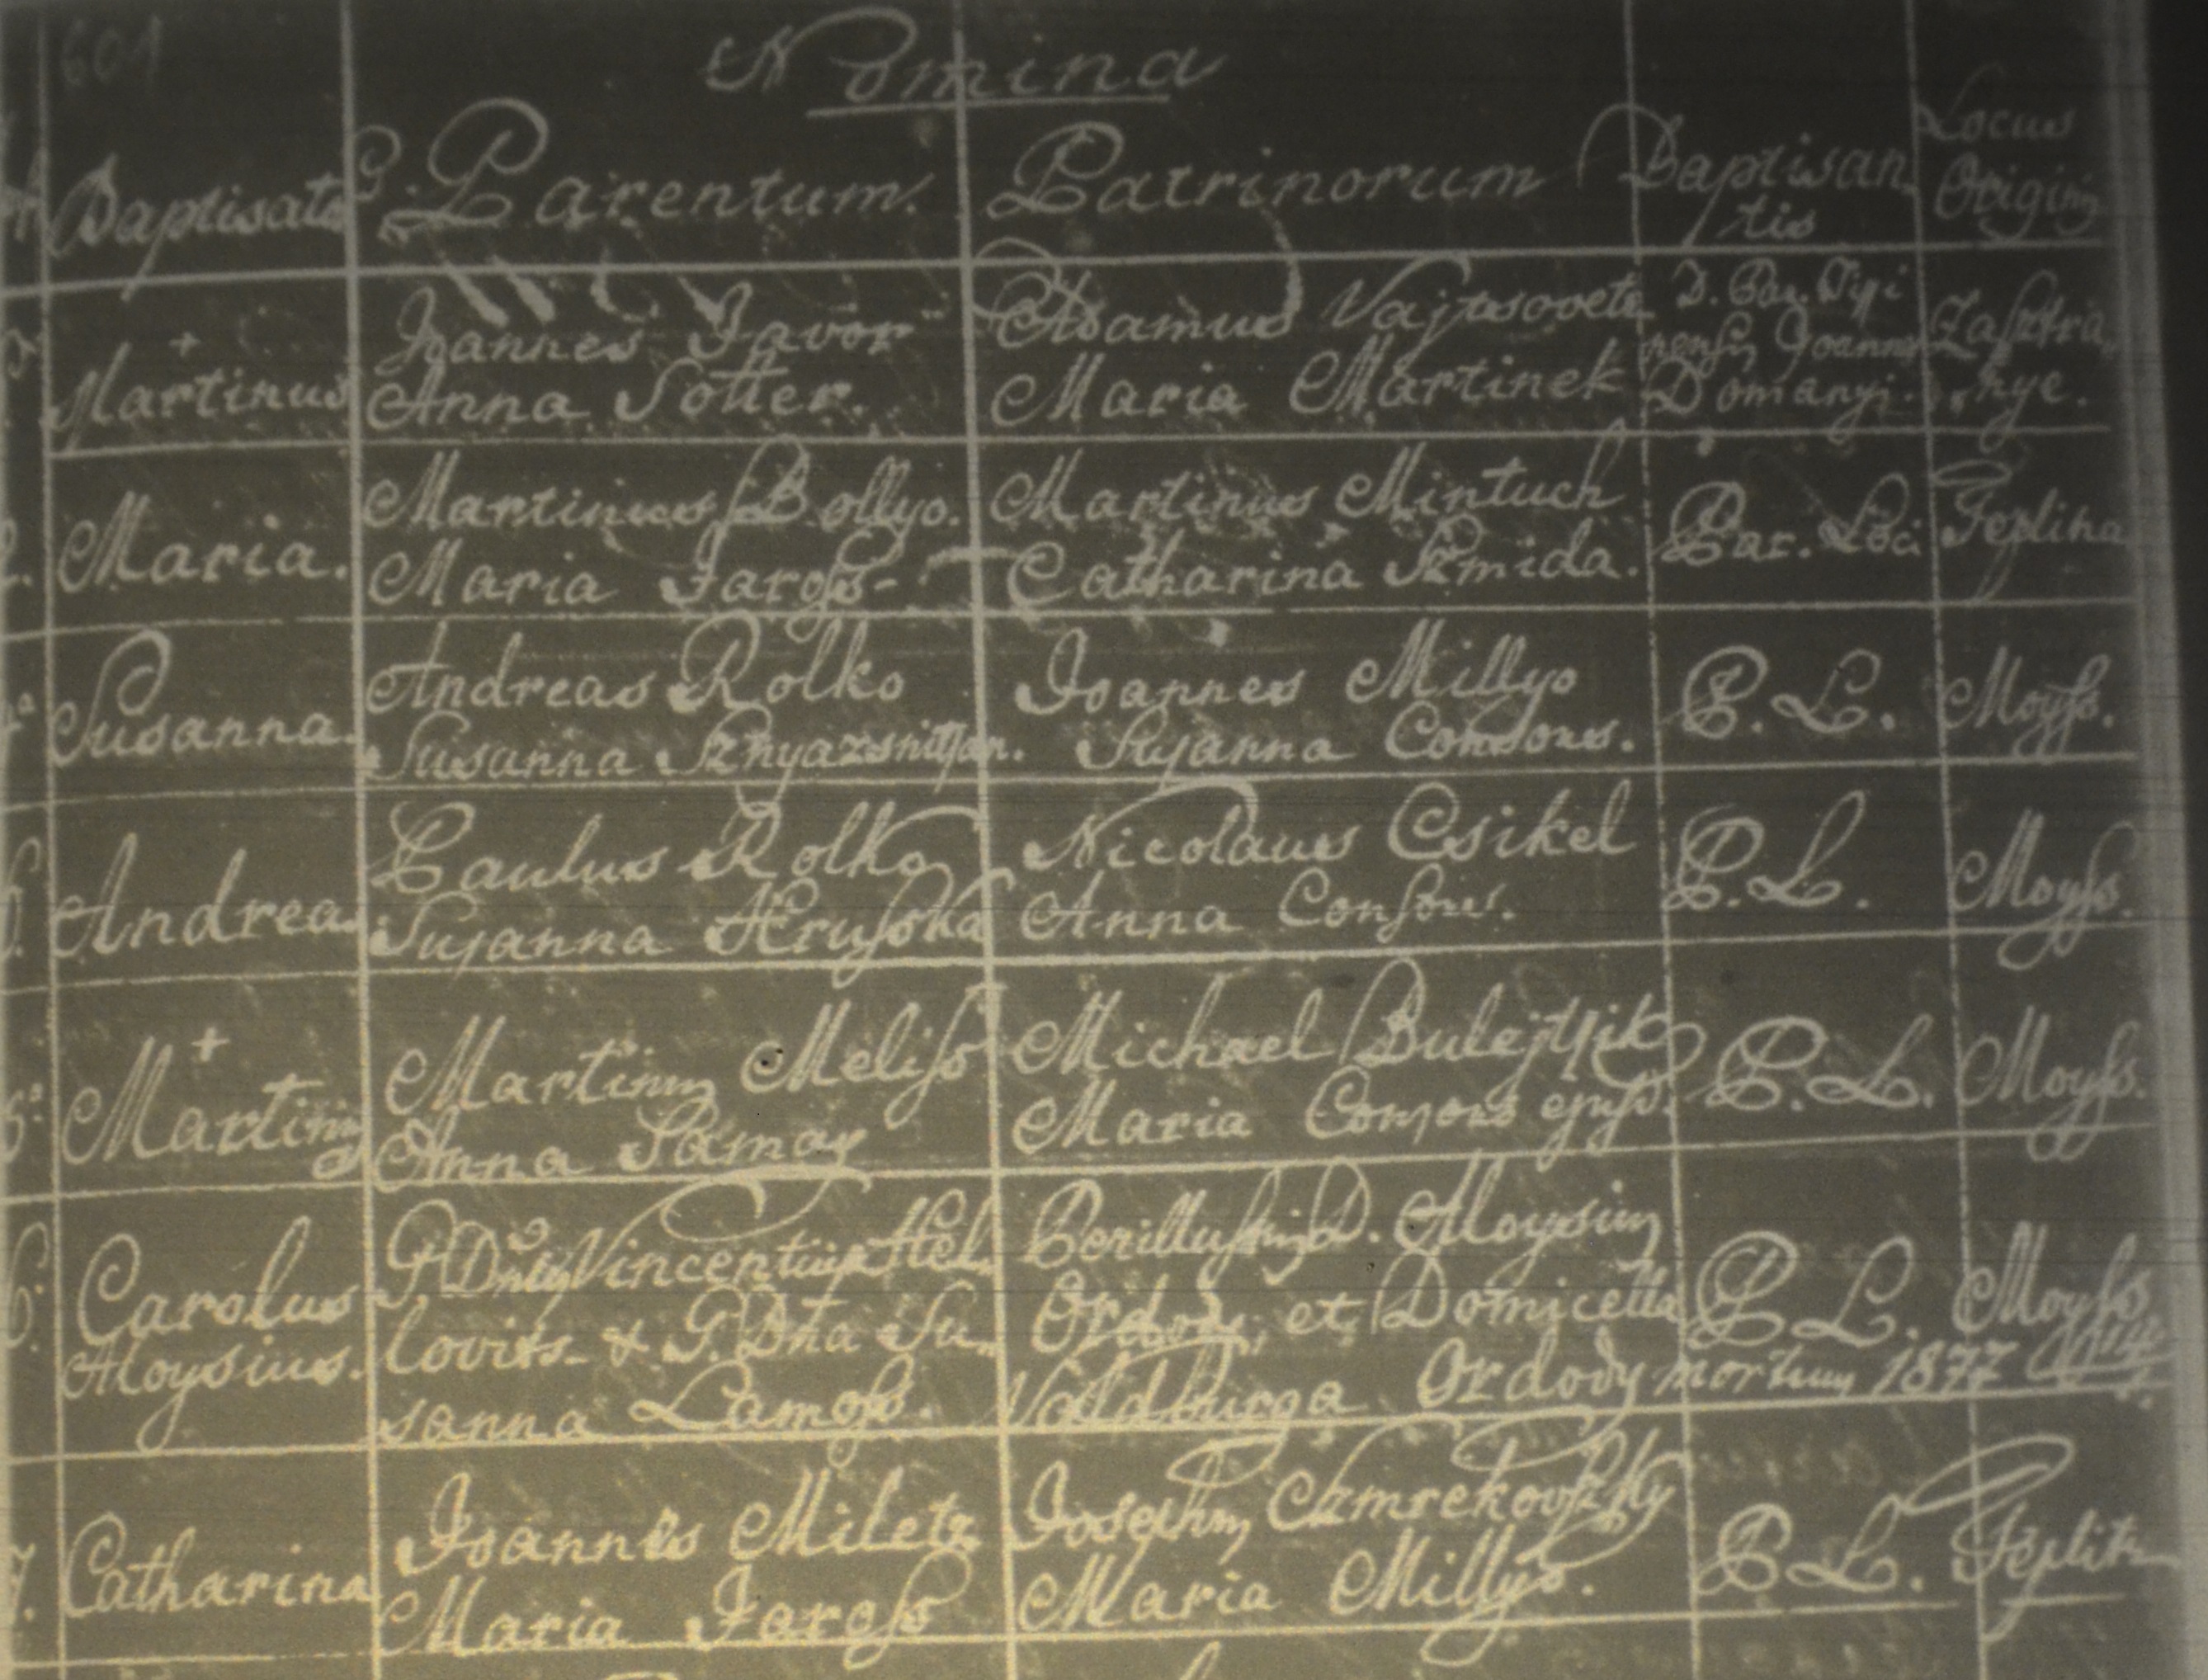 601
Nomina
Baptisat Parentum. Patrinorum Baptisan
tis
Locus
Origin
Martinus
Joannes Javor
Anna Sotter.
Adamus
Maria Martinek
D. Par.
Joann
Domanyi.
Zasztra
nye.
Maria.
Martinus Bollyo.
Maria Jaross
Martinus Mintuch
Catharina Szmida.
Par. Loci
Susanna.
Andreas Rolko
Susanna
Joannes Millyo
Susanna Consors.
P. L.
Moyss.
Andreas
Paulus Rolko
Susanna Hrusska
Nicolaus Csikel
Anna Consors.
P. L.
Moyss.
Martinus
Martinus Melisso
Anna Samay
Michael
Maria Consors ejus.
P. L.
Moyss.
Carolus
Aloysius.
Vincentius Hel
lovits & P. Dna Su
sanna Lamoss.
Perillustris D. Aloysius
Ordody, et Domicella
Valdburga Ordody
P. L. Moyss
mortuus 1877
Catharina
Joannes Miletz
Maria Jaross
Josephus
Maria Millyo.
P. L.